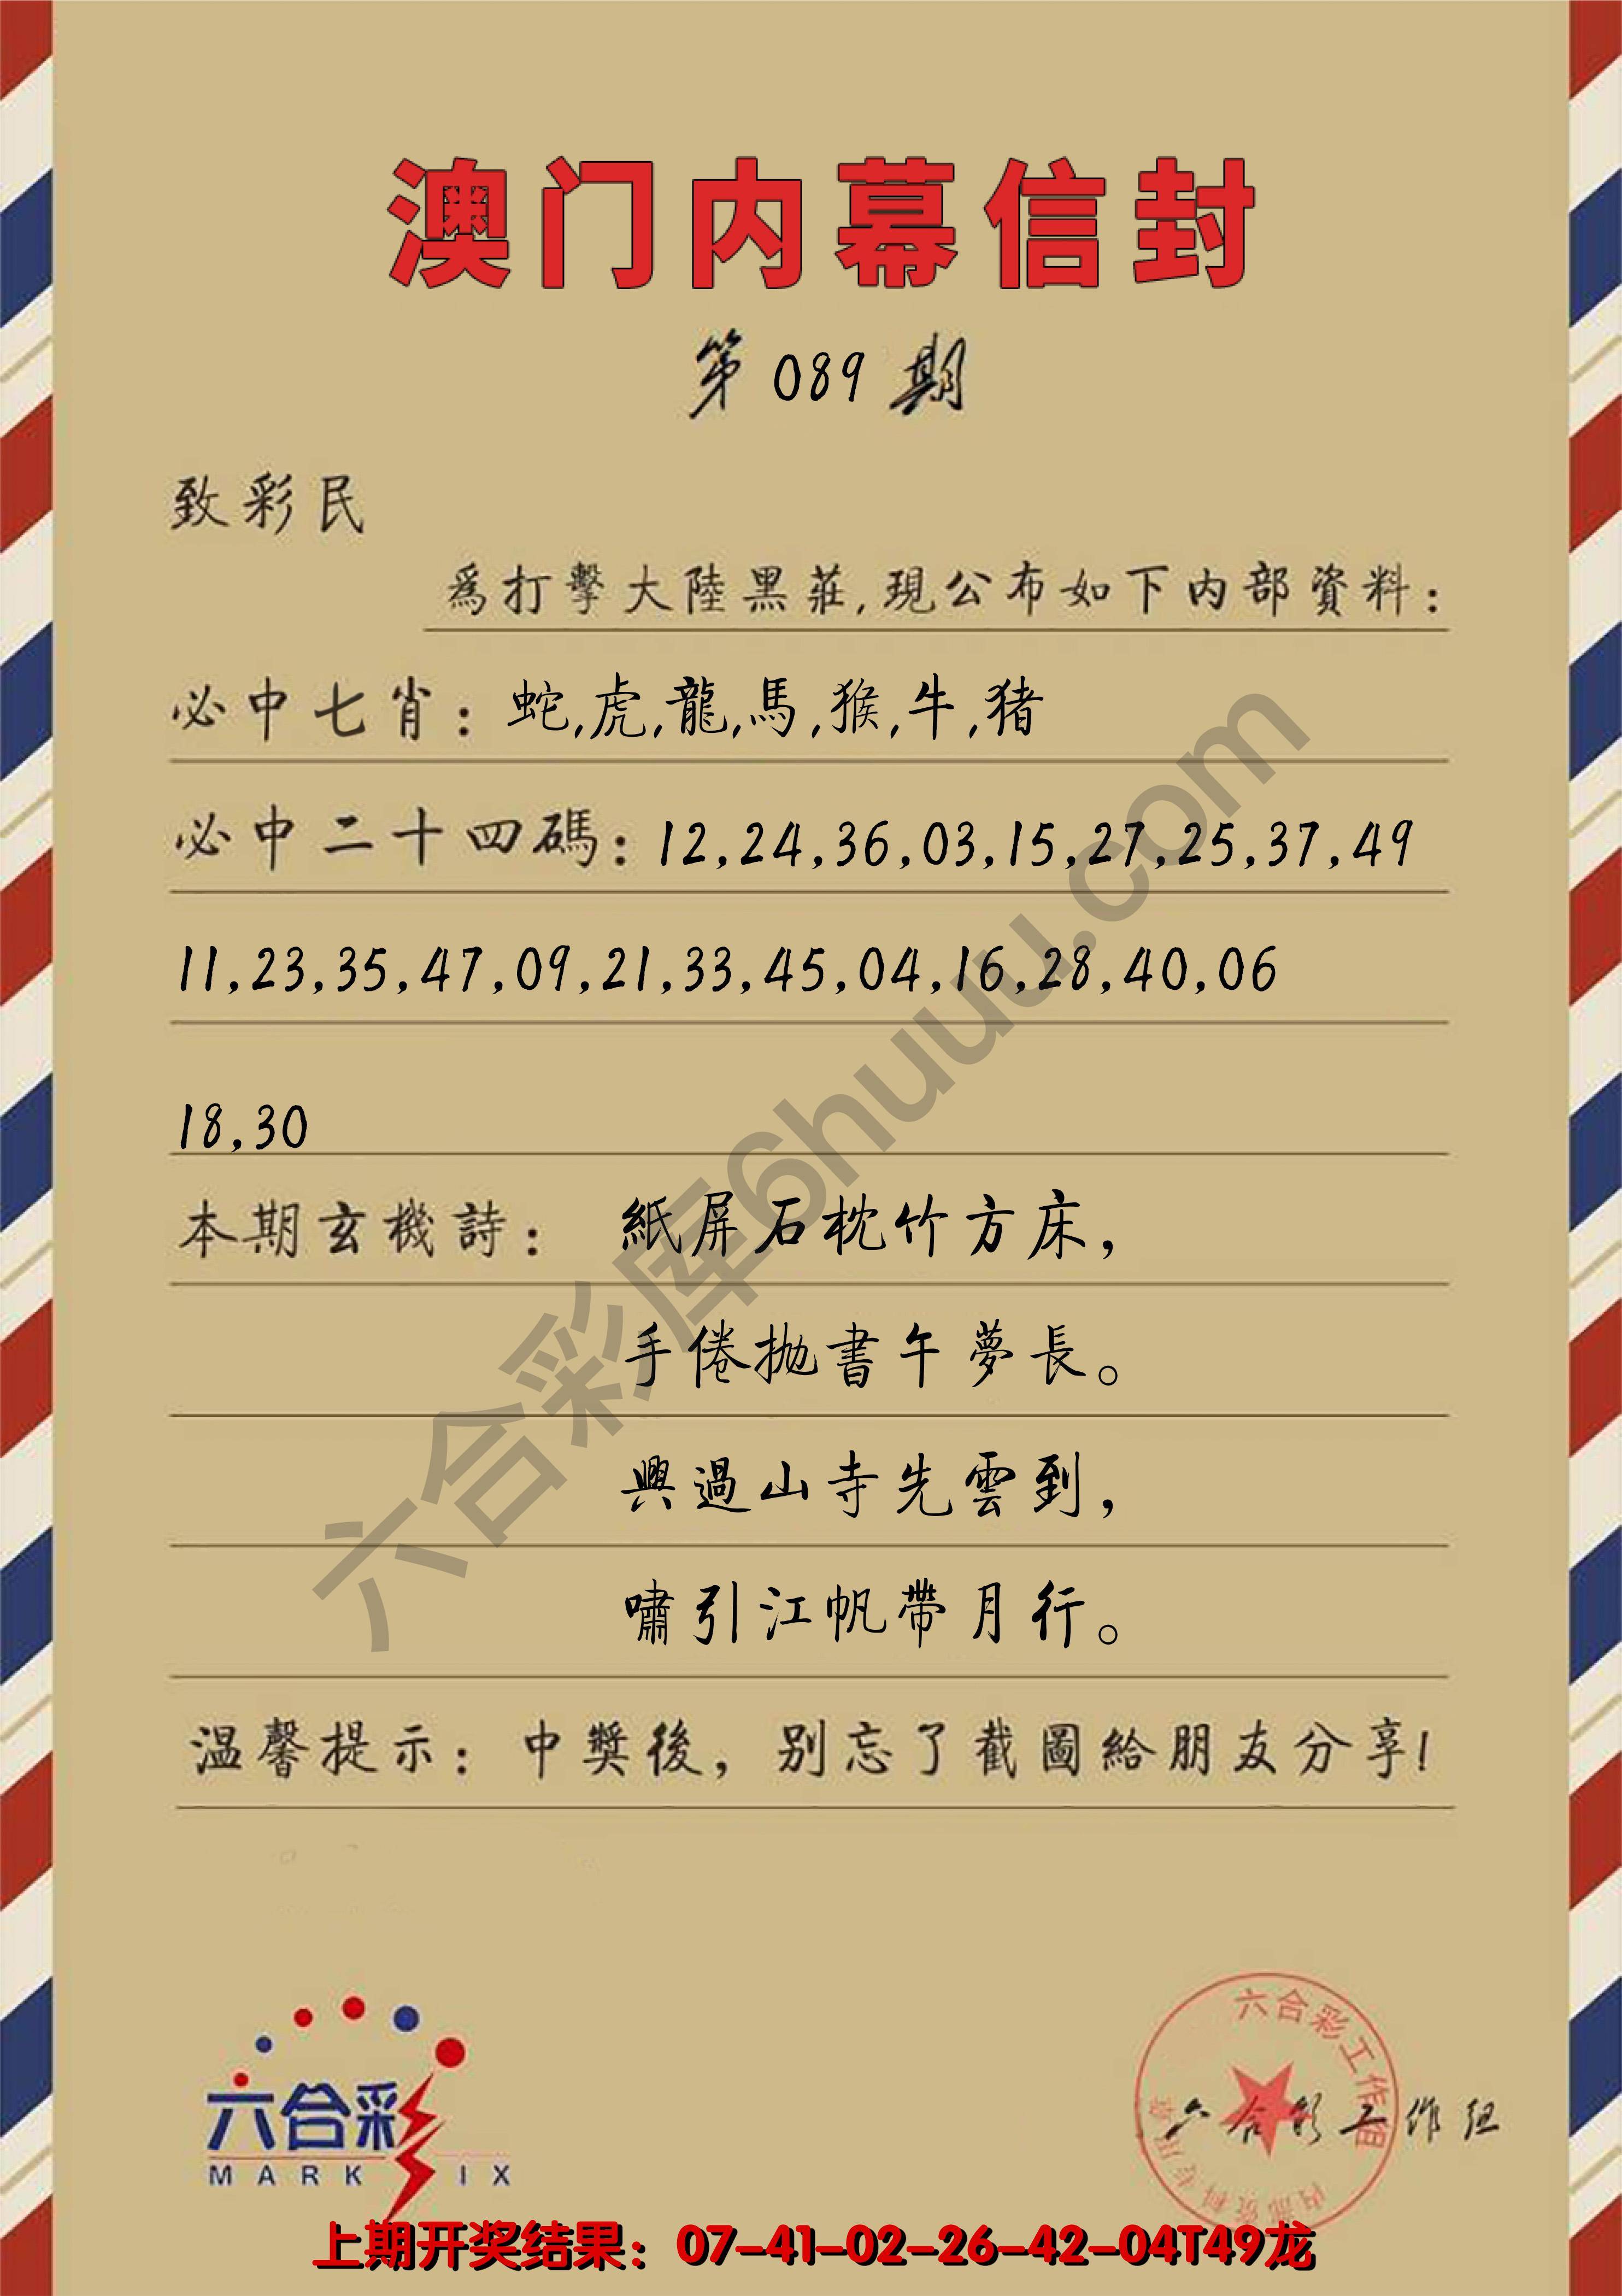 澳门内幕信封
第 089 期
致彩民
爲打擊大陸黑莊,現公布如下内部資料:
必中七肖: 蛇,虎,龍,馬,猴,牛,猪
必中二十四碼: 12,24,36,03,15,27,25,37,49
11,23,35,47,09,21,33,45,04,16,28,40,06
18,30
本期玄機詩: 紙屏石枕竹方床,
手倦抛書午夢長。
興過山寺先雲到,
嘯引江帆帶月行。
温馨提示: 中獎後, 别忘了截圖給朋友分享!
六合彩库6huuu.com
六合彩
MARK SIX
六合彩工作组
内部资料专用章
六合彩工作组
上期开奖结果: 07-41-02-26-42-04T49龙